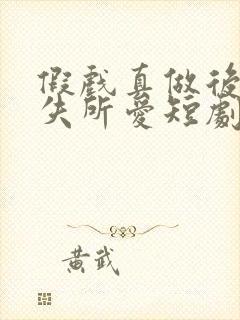 假戲真做後
失所愛短劇
黃武